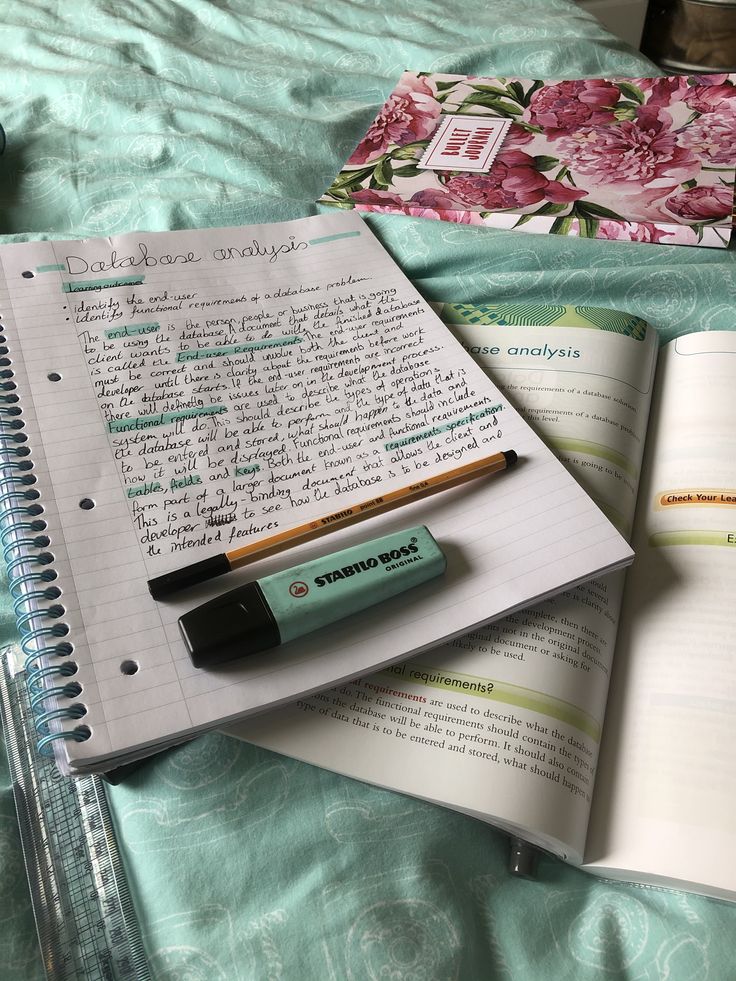 BULLET
JOURNAL
Database analysis
Learning outcomes
• identify the end-user
• identify functional requirements of a database problem.
The end-user is the person, people or business that is going
to be using the database. A document that details what the
client wants to be able to do with the finished database
is called the End-user Requirements. The end-user requirements
must be correct and should involve both the client and
developer until there is clarity about the requirements before work
on the database starts. If the end-user requirements are incorrect
there will definetly be issues later on in the development process.
Functional requirements are used to describe what the database
system will do. This should describe the types of operations
the database will be able to perform and the type of data that is
to be entered and stored, what should happen to the data and
how it will be displayed. Functional requirements should include
tables, fields and keys. Both the end-user and functional requirements
form part of a larger document known as a requirements specification.
This is a legally-binding document that allows the client and
developer to see how the database is to be designed and
the intended features
STABILO point 88 fine 0.4
STABILO BOSS
ORIGINAL
base analysis
ng the requirements of a database solution
nal requirements of a database problem
this level.
that is going to be using
Check Your Lea
Ex
should
ke several
re is clarity about
mplete, then there are
the development process
ments not in the original document
iginal document or asking for
likely to be used.
nal requirements?
al requirements are used to describe what the database
l do. The functional requirements should contain the types of
ons the database will be able to perform. It should also contain
type of data that is to be entered and stored, what should happen to